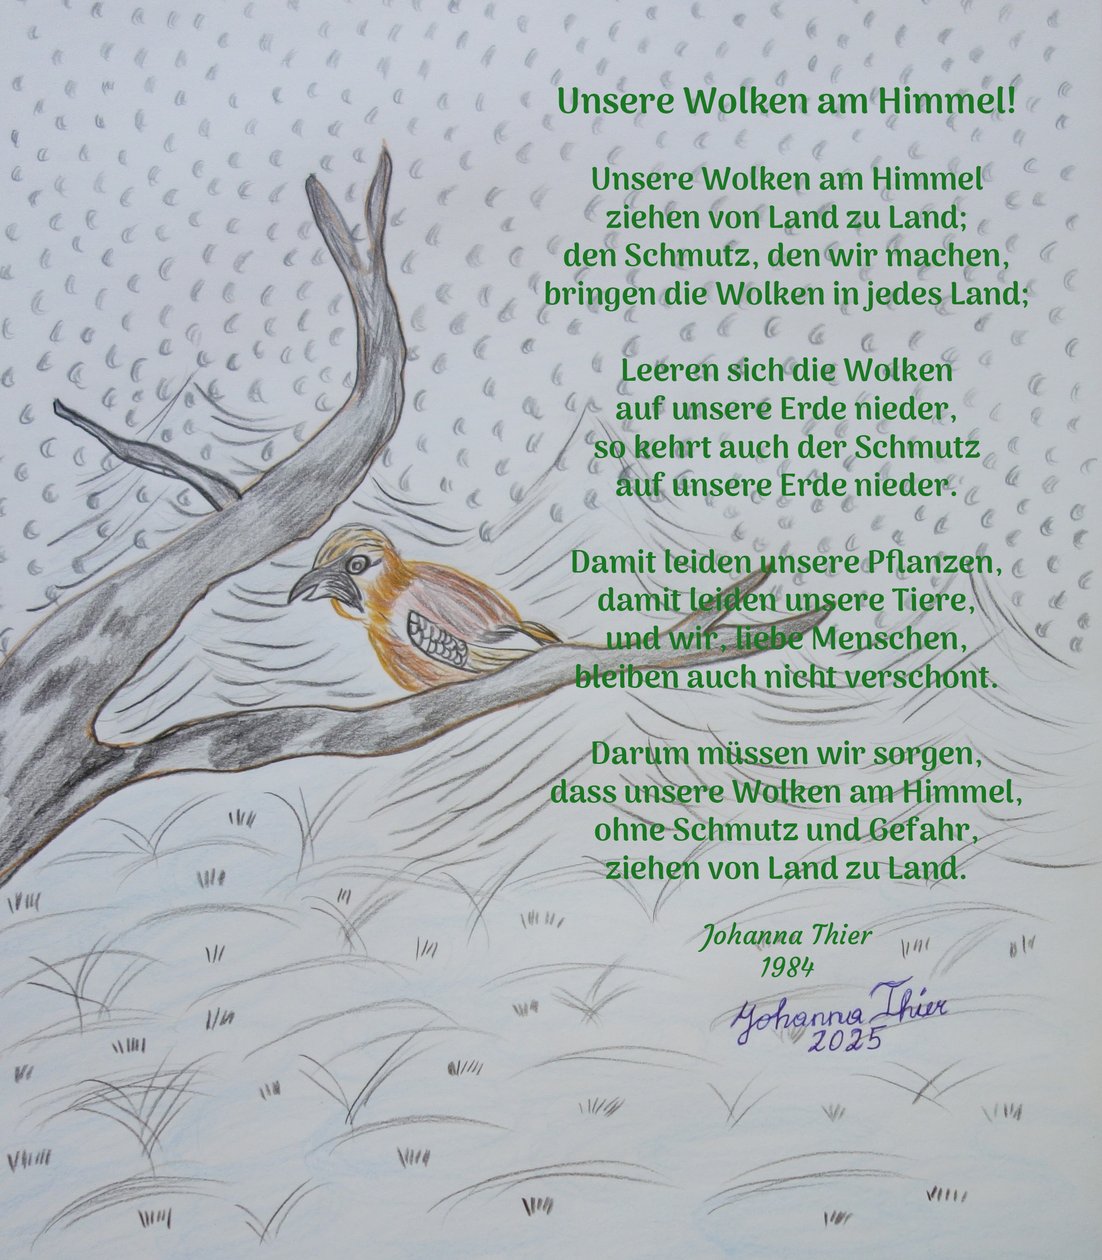 Unsere Wolken am Himmel!
Unsere Wolken am Himmel
ziehen von Land zu Land;
den Schmutz, den wir machen,
bringen die Wolken in jedes Land;
Leeren sich die Wolken
auf unsere Erde nieder,
so kehrt auch der Schmutz
auf unsere Erde nieder.
Damit leiden unsere Pflanzen,
damit leiden unsere Tiere,
und wir, liebe Menschen,
bleiben auch nicht verschont.
Darum müssen wir sorgen,
dass unsere Wolken am Himmel,
ohne Schmutz und Gefahr,
ziehen von Land zu Land.
Johanna Thier
1984
Johanna Thier
2025